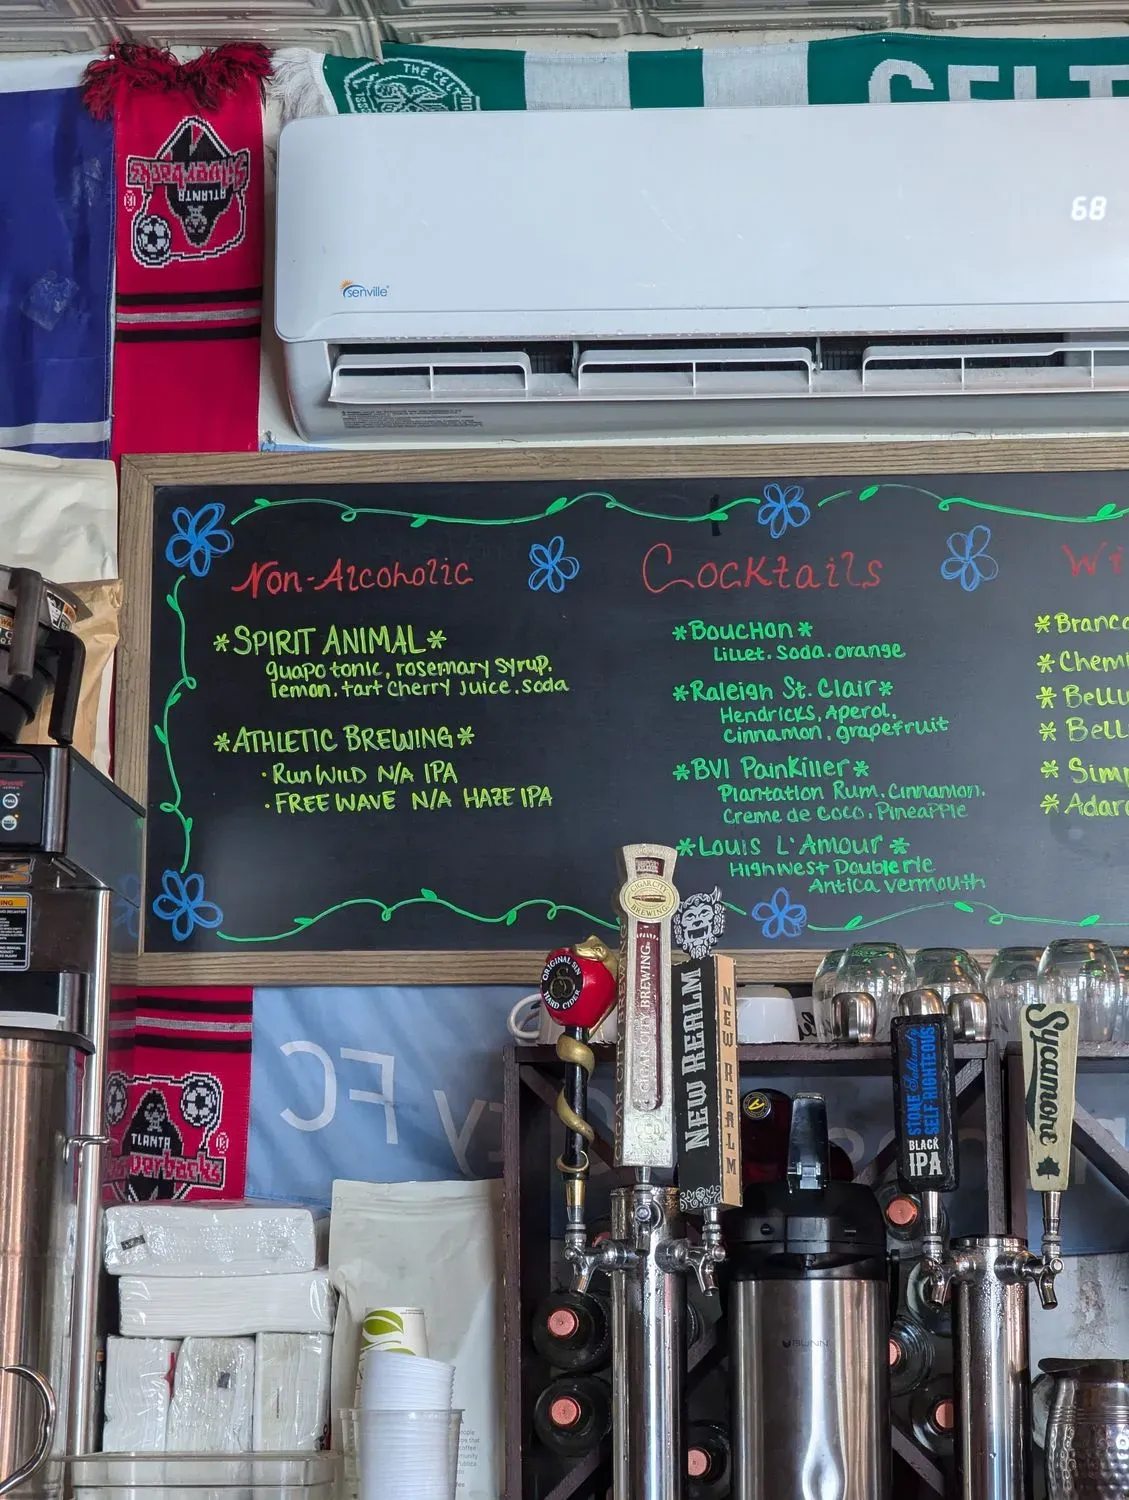 THE CELT
CELT
Silverbacks
ATLANTA
68
senville
Non-Alcoholic
*SPIRIT ANIMAL*
guapo tonic, rosemary syrup,
lemon, tart cherry juice, soda
*ATHLETIC BREWING*
• Run Wild N/A IPA
• FREE WAVE N/A HAZE IPA
Cocktails
*Bouchon*
Lillet. Soda. orange
*Raleigh St. Clair*
Hendricks, Aperol,
Cinnamon, grapefruit
*BVI Painkiller*
Plantation Rum. Cinnamon.
Creme de Coco. Pineapple
*Louis L'Amour*
High West Double rie
Antica vermouth
Wi
*Branc
*Chemi
*Bellu
*Bell
*Simp
*Adar
ORIGINAL SIN
HARD CIDER
CIGAR CITY
BREWING
CIGAR CITY BREWING
NEW REALM
NEW REALM
STONE Sublimely
SELF-RIGHTEOUS
BLACK
IPA
Sycamore
TLANTA
verbacks
FC
BUNN